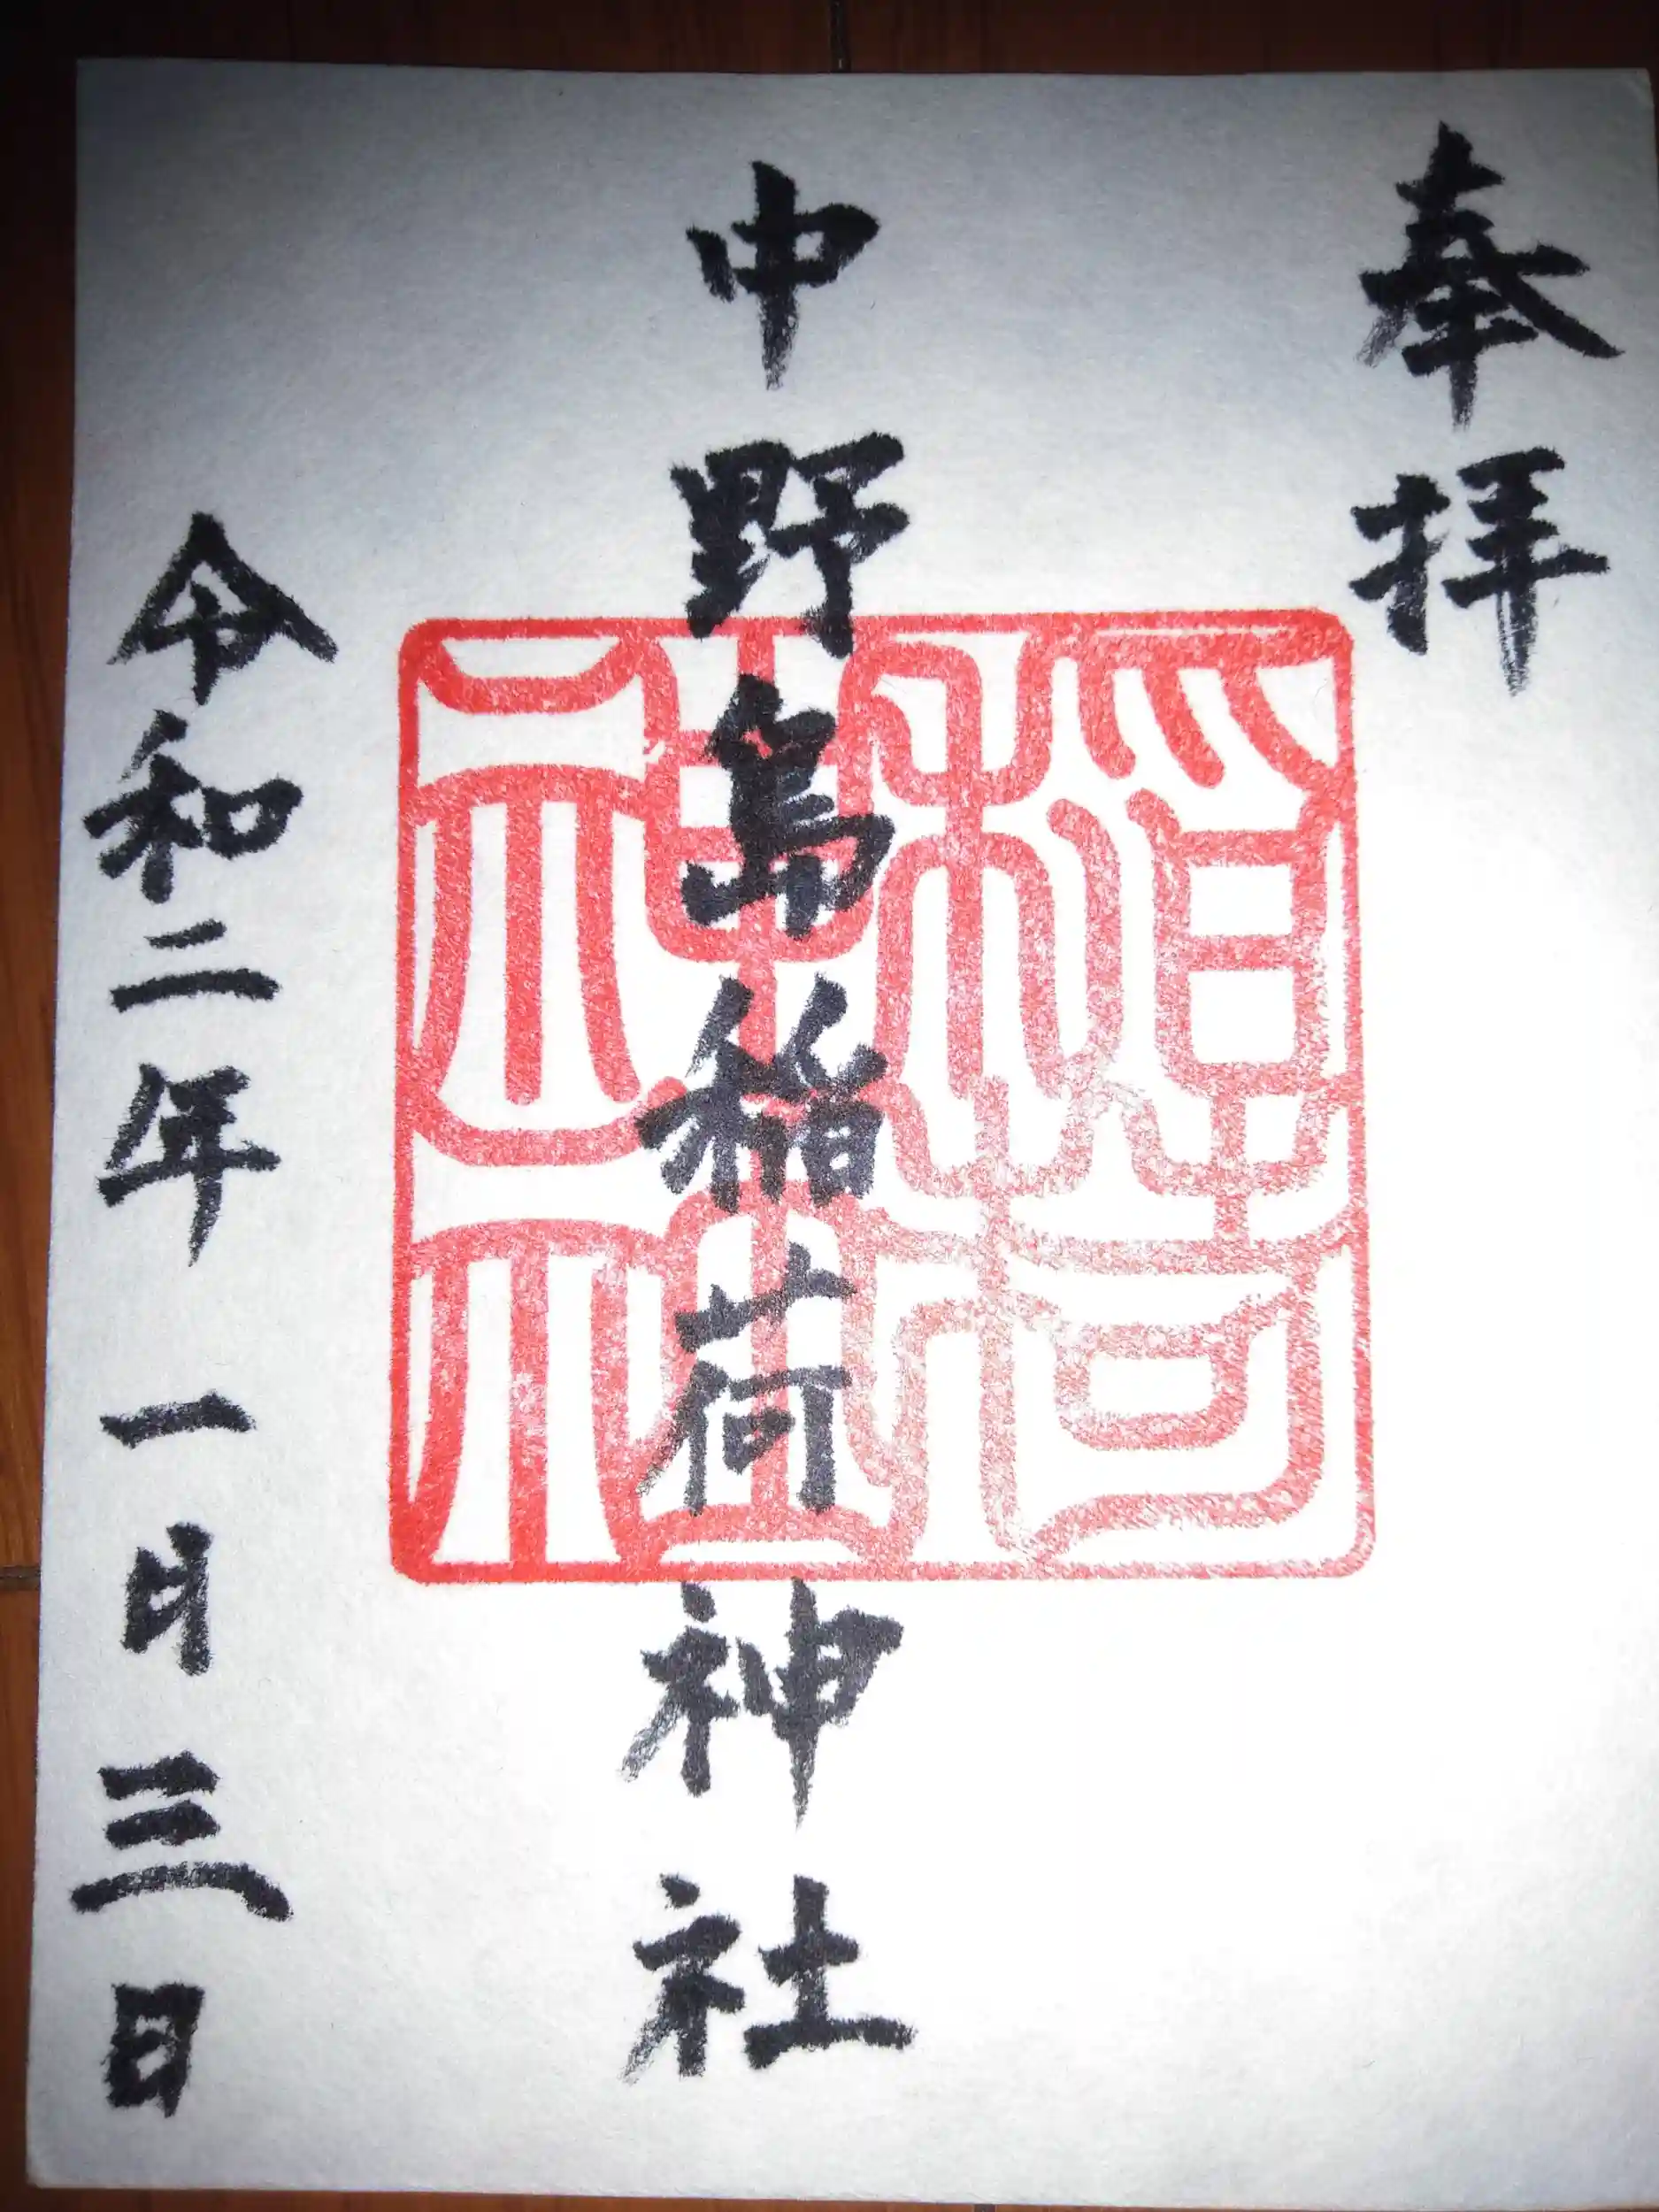 奉拝
中野島稲荷神社
稲荷神社
令和二年一月三日